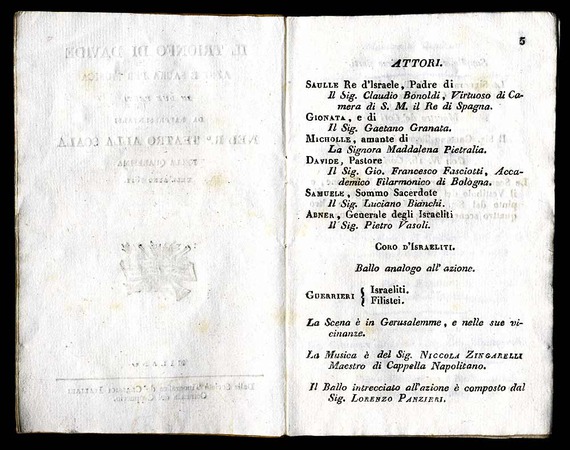 5
ATTORI.
SAULLE Re d'Israele, Padre di
Il Sig. Claudio Bonoldi, Virtuoso di Ca-
mera di S. M. il Re di Spagna.
GIONATA, e di
Il Sig. Gaetano Granata.
MICHOLLE, amante di
La Signora Maddalena Pietralia.
DAVIDE, Pastore
Il Sig. Gio. Francesco Fasciotti, Acca-
demico Filarmonico di Bologna.
SAMUELE, Sommo Sacerdote
Il Sig. Luciano Bianchi.
ABNER, Generale degli Israeliti
Il Sig. Pietro Vasoli.
CORO D'ISRAELITI.
Ballo analogo all' azione.
GUERRIERI { Israeliti.
Filistei.
La Scena è in Gerusalemme, e nelle sue vi-
cinanze.
La Musica è del Sig. NICCOLA ZINGARELLI
Maestro di Cappella Napolitano.
Il Ballo intrecciato all'azione è composto dal
Sig. LORENZO PANZIERI.
IL TRIONFO DI DAVIDE
NEL R.º TEATRO ALLA SCALA
MILANO